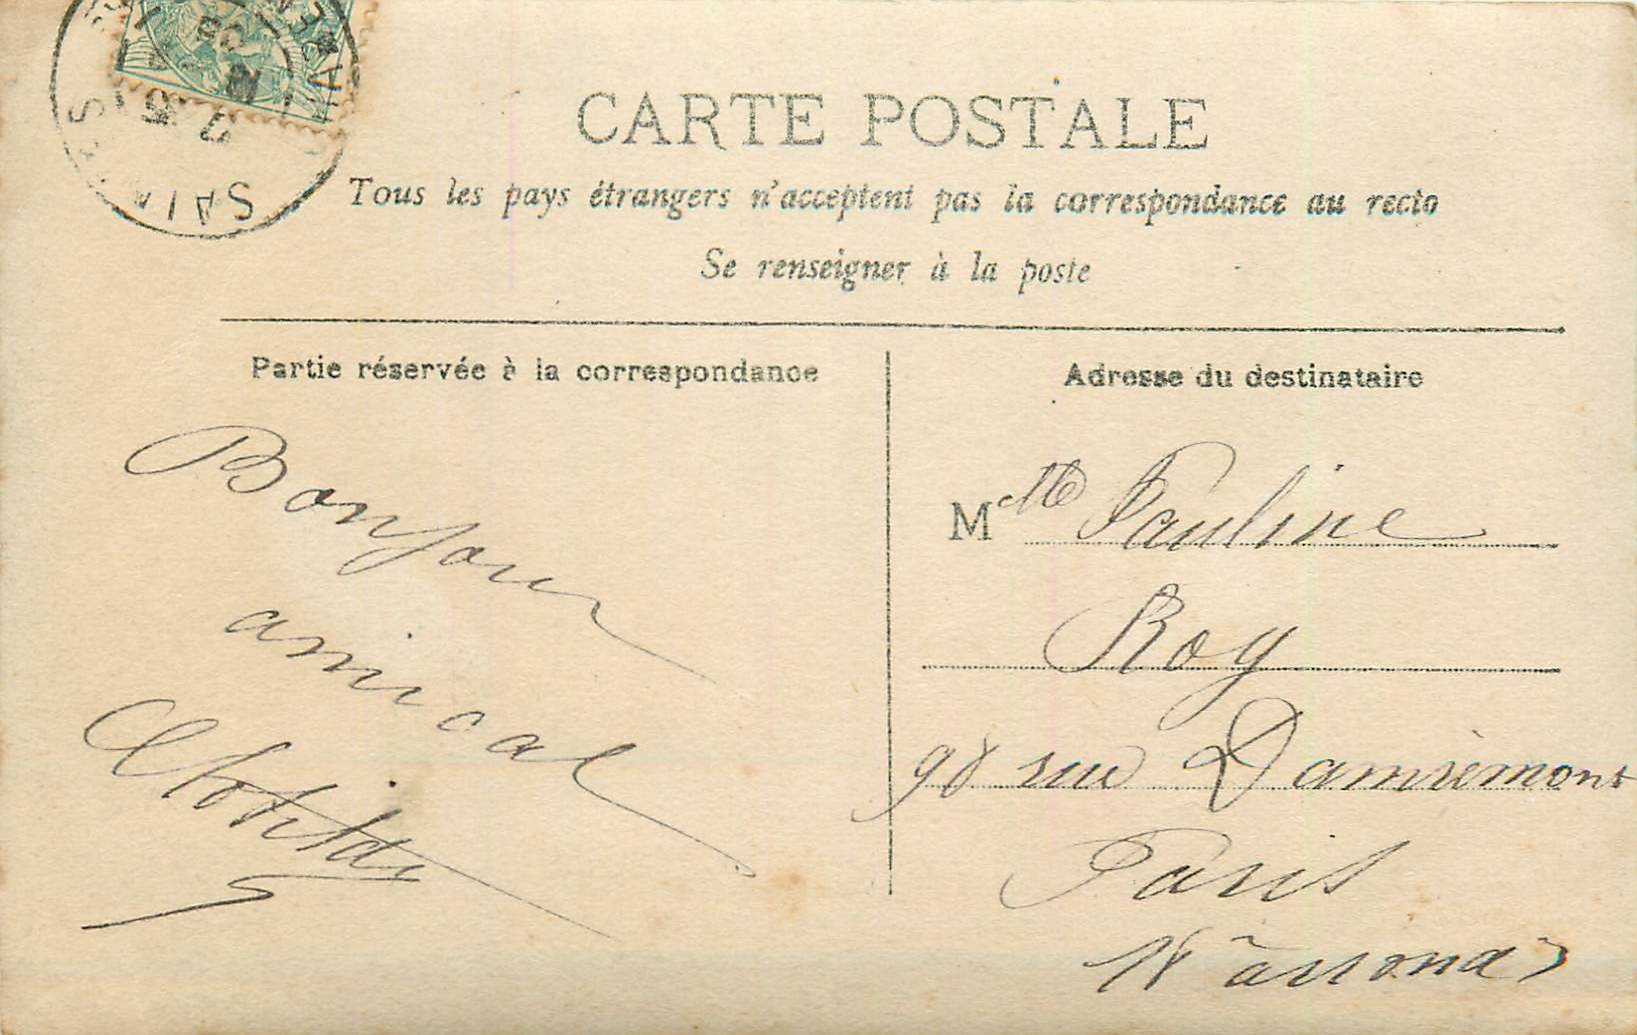 CARTE POSTALE
Tous les pays étrangers n'acceptent pas la correspondance au recto
Se renseigner à la poste
Partie réservée à la correspondance
Adresse du destinataire
Bonjour
amical
Clotilde
Mlle Pauline
Roy
98 rue Damrémont
Paris
18e arrond